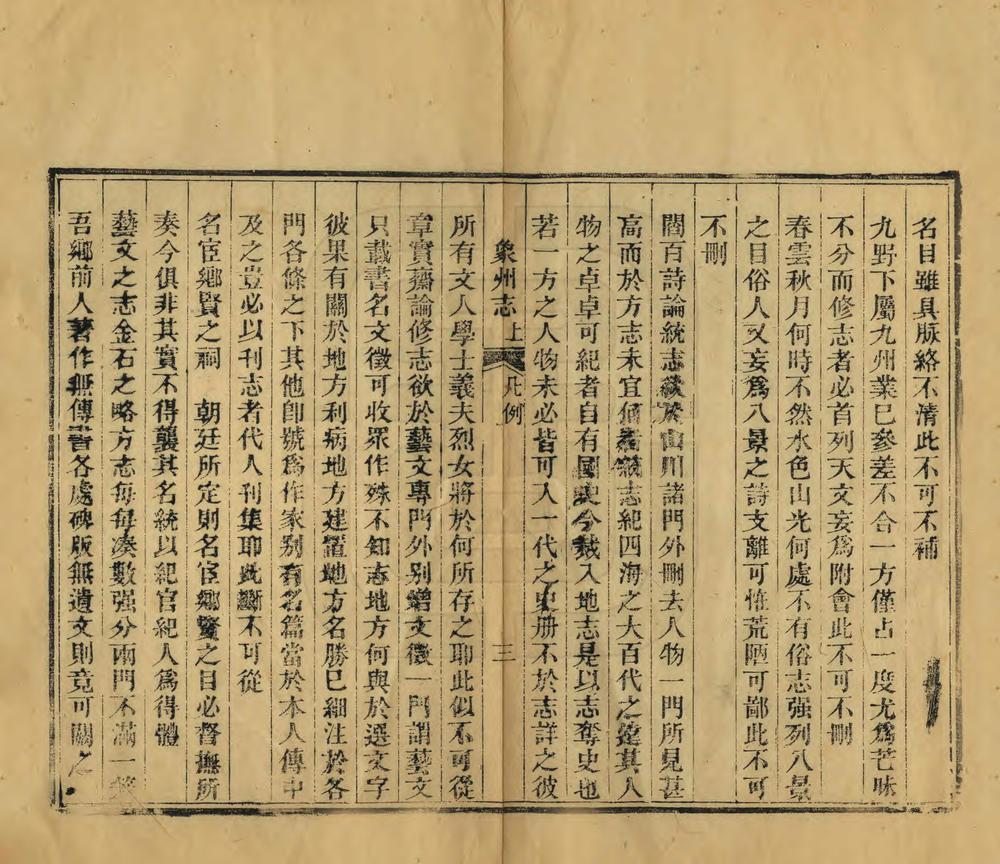 名目雖具脉絡不清此不可不補
九野下屬九州業已參差不合一方僅占一度尤爲芒昧
不分而修志者必首列天文妄爲附會此不可不刪
春雲秋月何時不然水色山光何處不有俗志强列八景
之目俗人又妄爲八景之詩支離可恠荒陋可鄙此不可
不刪
閻百詩論統志於山川諸門外刪去人物一門所見甚
高而於方志未宜統志紀四海之大百代之遠其人
物之卓卓可紀者自有國史今載入地志是以志奪史也
若一方之人物未必皆可入一代之史册不於志詳之彼
象州志 上 凡例 三
所有文人學士義夫烈女將於何所存之耶此似不可從
章實齋論修志欲於藝文專門外别增文徵一門謂藝文
只載書名文徵可收眾作殊不知志地方何與於選文字
彼果有關於地方利病地方建置地方名勝已細注於各
門各條之下其他卽號爲作家别有名篇當於本人傳中
及之豈必以刊志者代人刊集耶此斷不可從
名宦鄉賢之祠 朝廷所定則名宦鄉賢之目必督撫所
奏今俱非其實不得襲其名統以紀官紀人爲得體
藝文之志金石之略方志每每湊數强分兩門不滿一
吾鄉前人著作無傳書各處碑版無遺文則竟可闕之